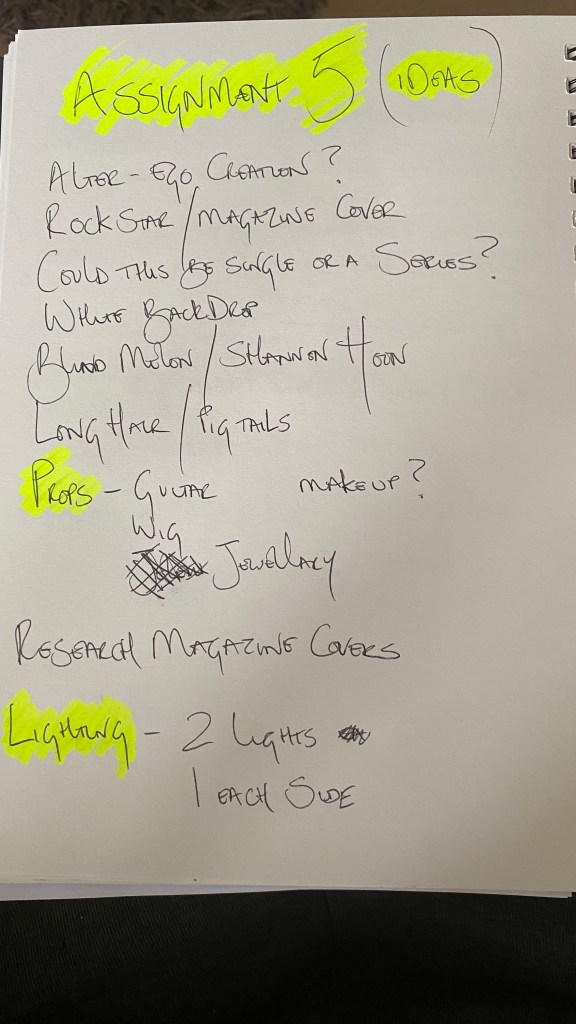 ASSIGNMENT 5 (IDEAS)
ALTER-EGO CREATION?
ROCK STAR/MAGAZINE COVER
COULD THIS BE SINGLE OR A SERIES?
WHITE BACKDROP
BLIND MELON/SHANNON HOON
LONG HAIR/PIG TAILS
PROPS - GUITAR MAKEUP?
WIG
JEWELLARY
RESEARCH MAGAZINE COVERS
LIGHTING - 2 LIGHTS
1 EACH SIDE